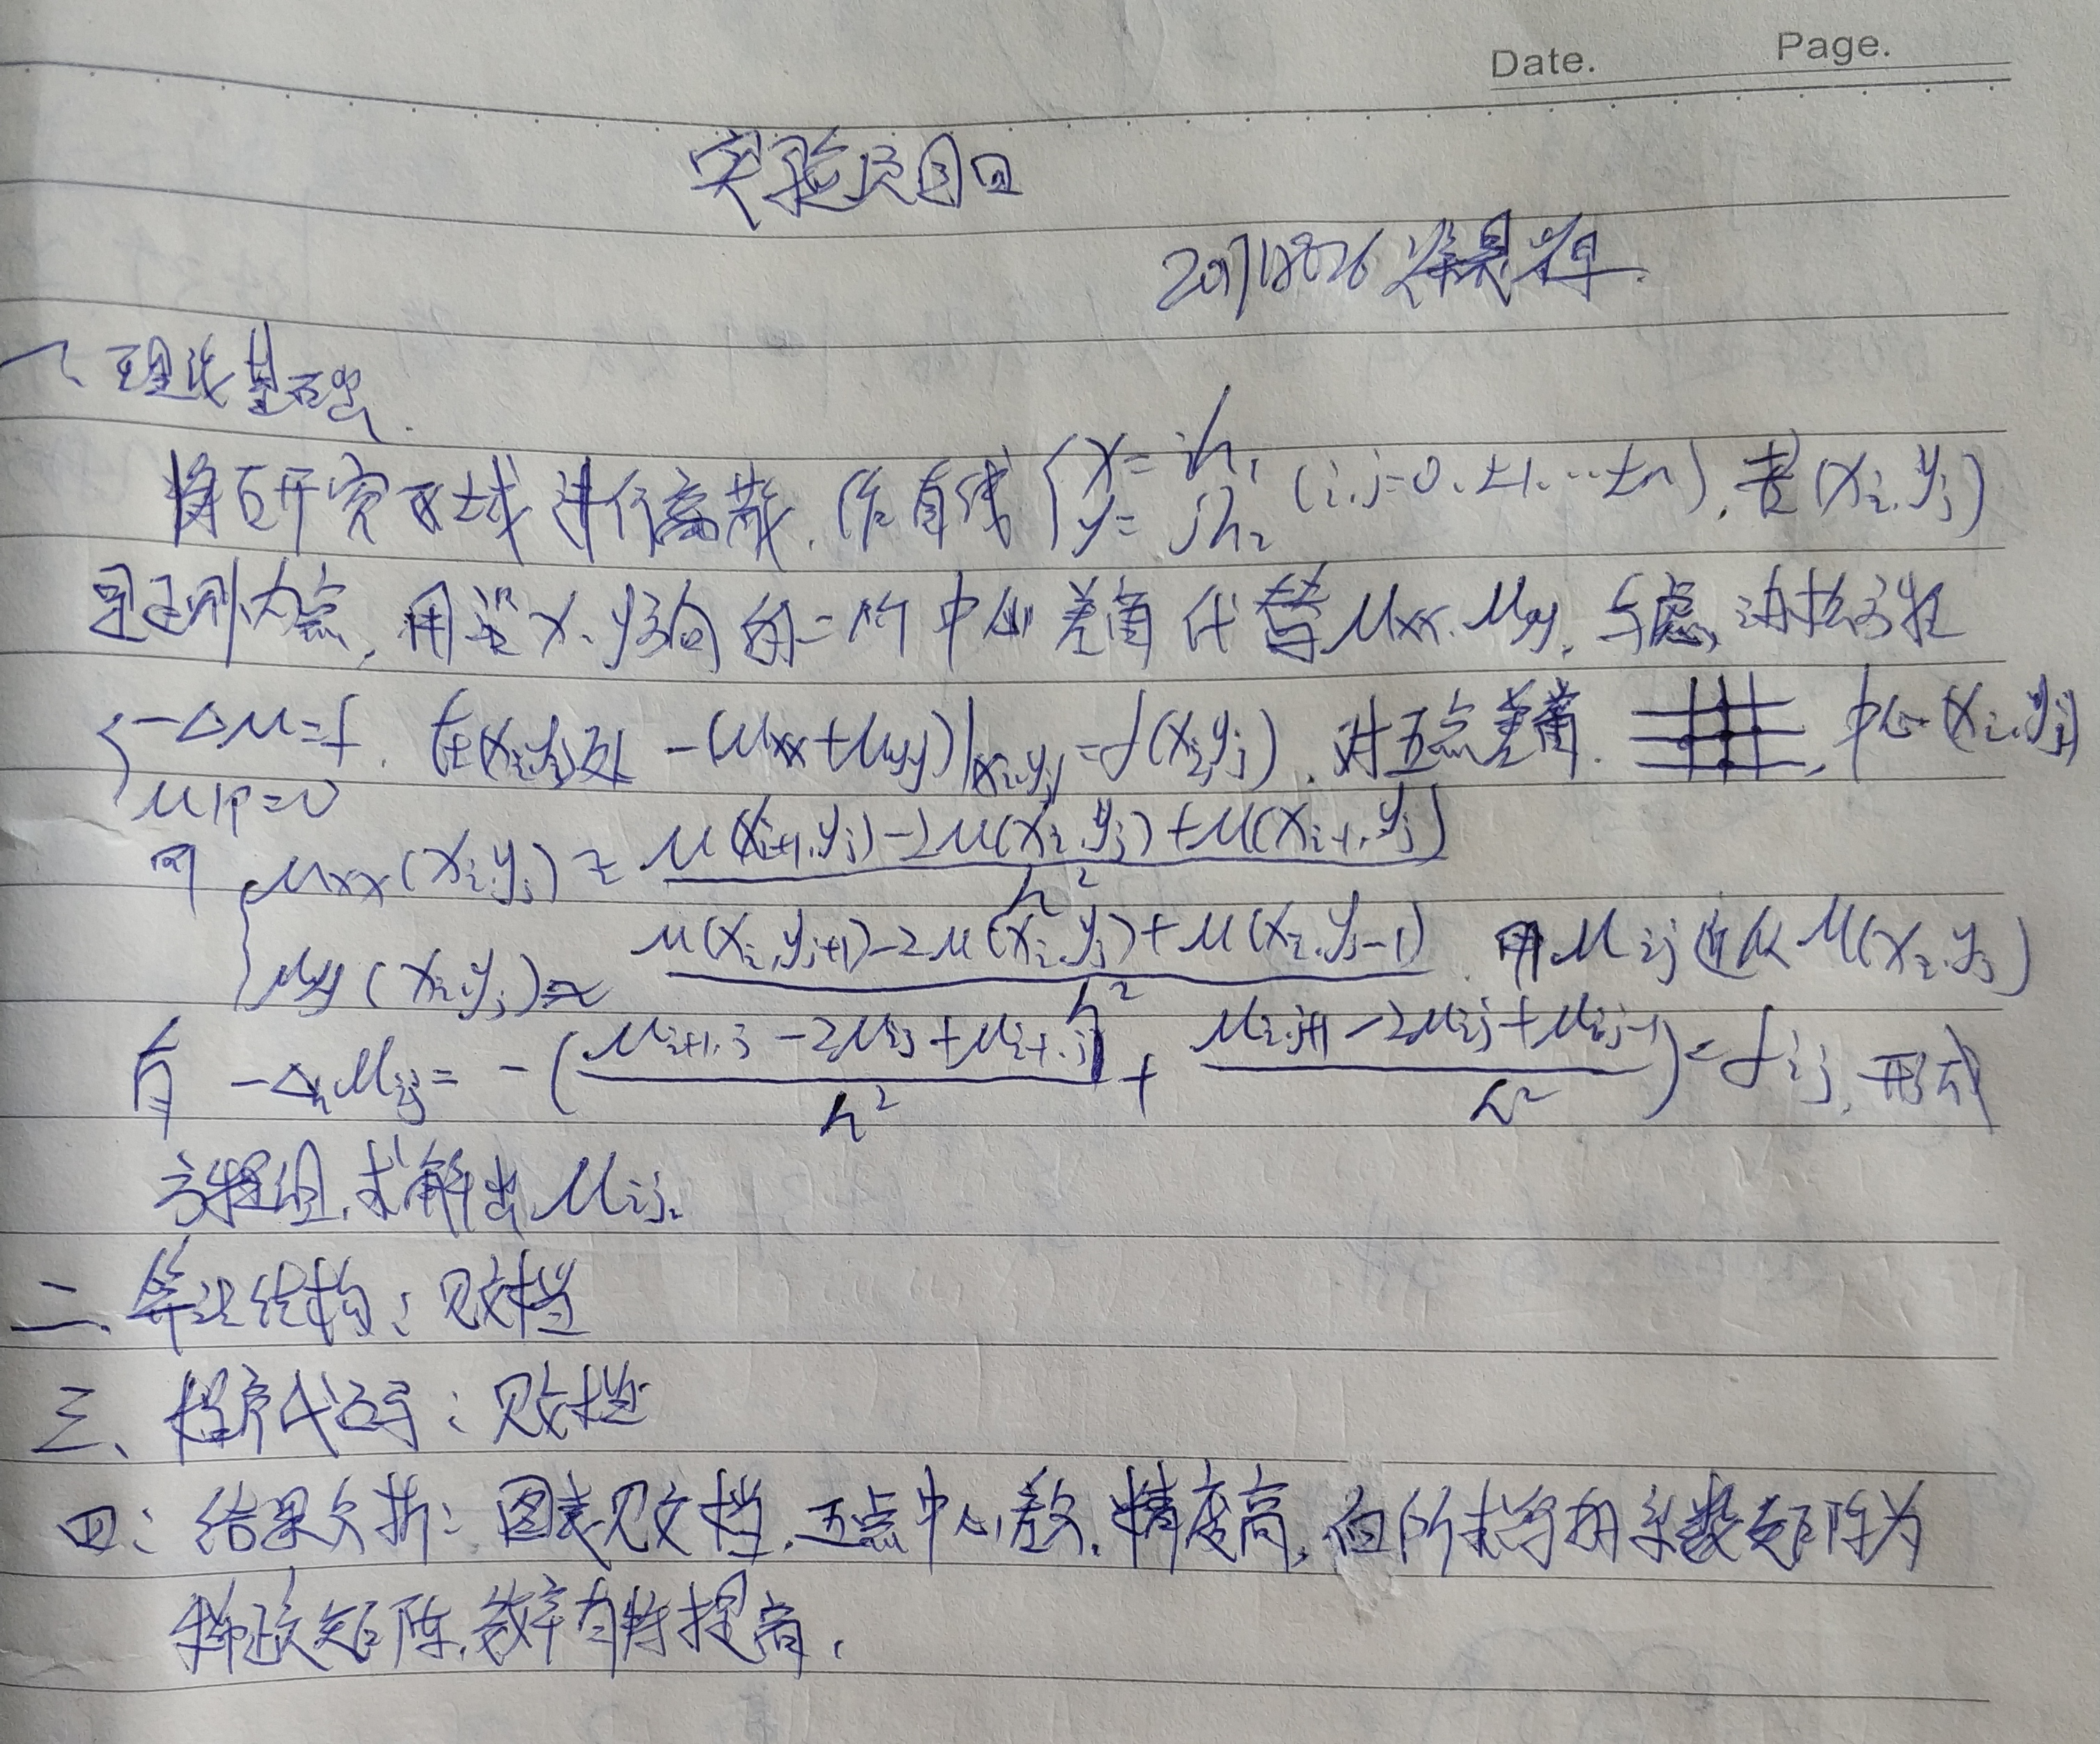 Date. Page.
实验项目四
20
一、理论基础.
将研究区域进行离散,作直线 { x=ih₁ y=jh₂ (i,j=0,±1,…±n),若(xᵢ,yⱼ)
是正则内点,用沿x、y方向的二阶中心差商代替uxx、uyy,考虑泊松方程
{ -Δu=f u|Γ=0 . 在(xᵢ,yⱼ)处 -(uxx+uyy)|(xᵢ,yⱼ)=f(xᵢ,yⱼ),对五点差商. 中心(xᵢ,yⱼ)
可 { uxx(xᵢ,yⱼ)≈ (u(xᵢ₊₁,yⱼ)-2u(xᵢ,yⱼ)+u(xᵢ₋₁,yⱼ))/h²
uyy(xᵢ,yⱼ)≈ (u(xᵢ,yⱼ₊₁)-2u(xᵢ,yⱼ)+u(xᵢ,yⱼ-1))/h² . 用uij近似u(xᵢ,yⱼ)
有 -Δₕuij= -( (uᵢ₊₁,ⱼ-2uij+uᵢ₋₁,ⱼ)/h² + (uᵢ,ⱼ₊₁-2uij+uᵢ,ⱼ₋₁)/h² )=fij,形成
方程组,求解出uij.
二、算法结构:见文档
三、程序代码:见文档
四:结果分析:图表见文档,五点中心差分,精度高,但所求得的系数矩阵为
稀疏矩阵,效率有待提高.